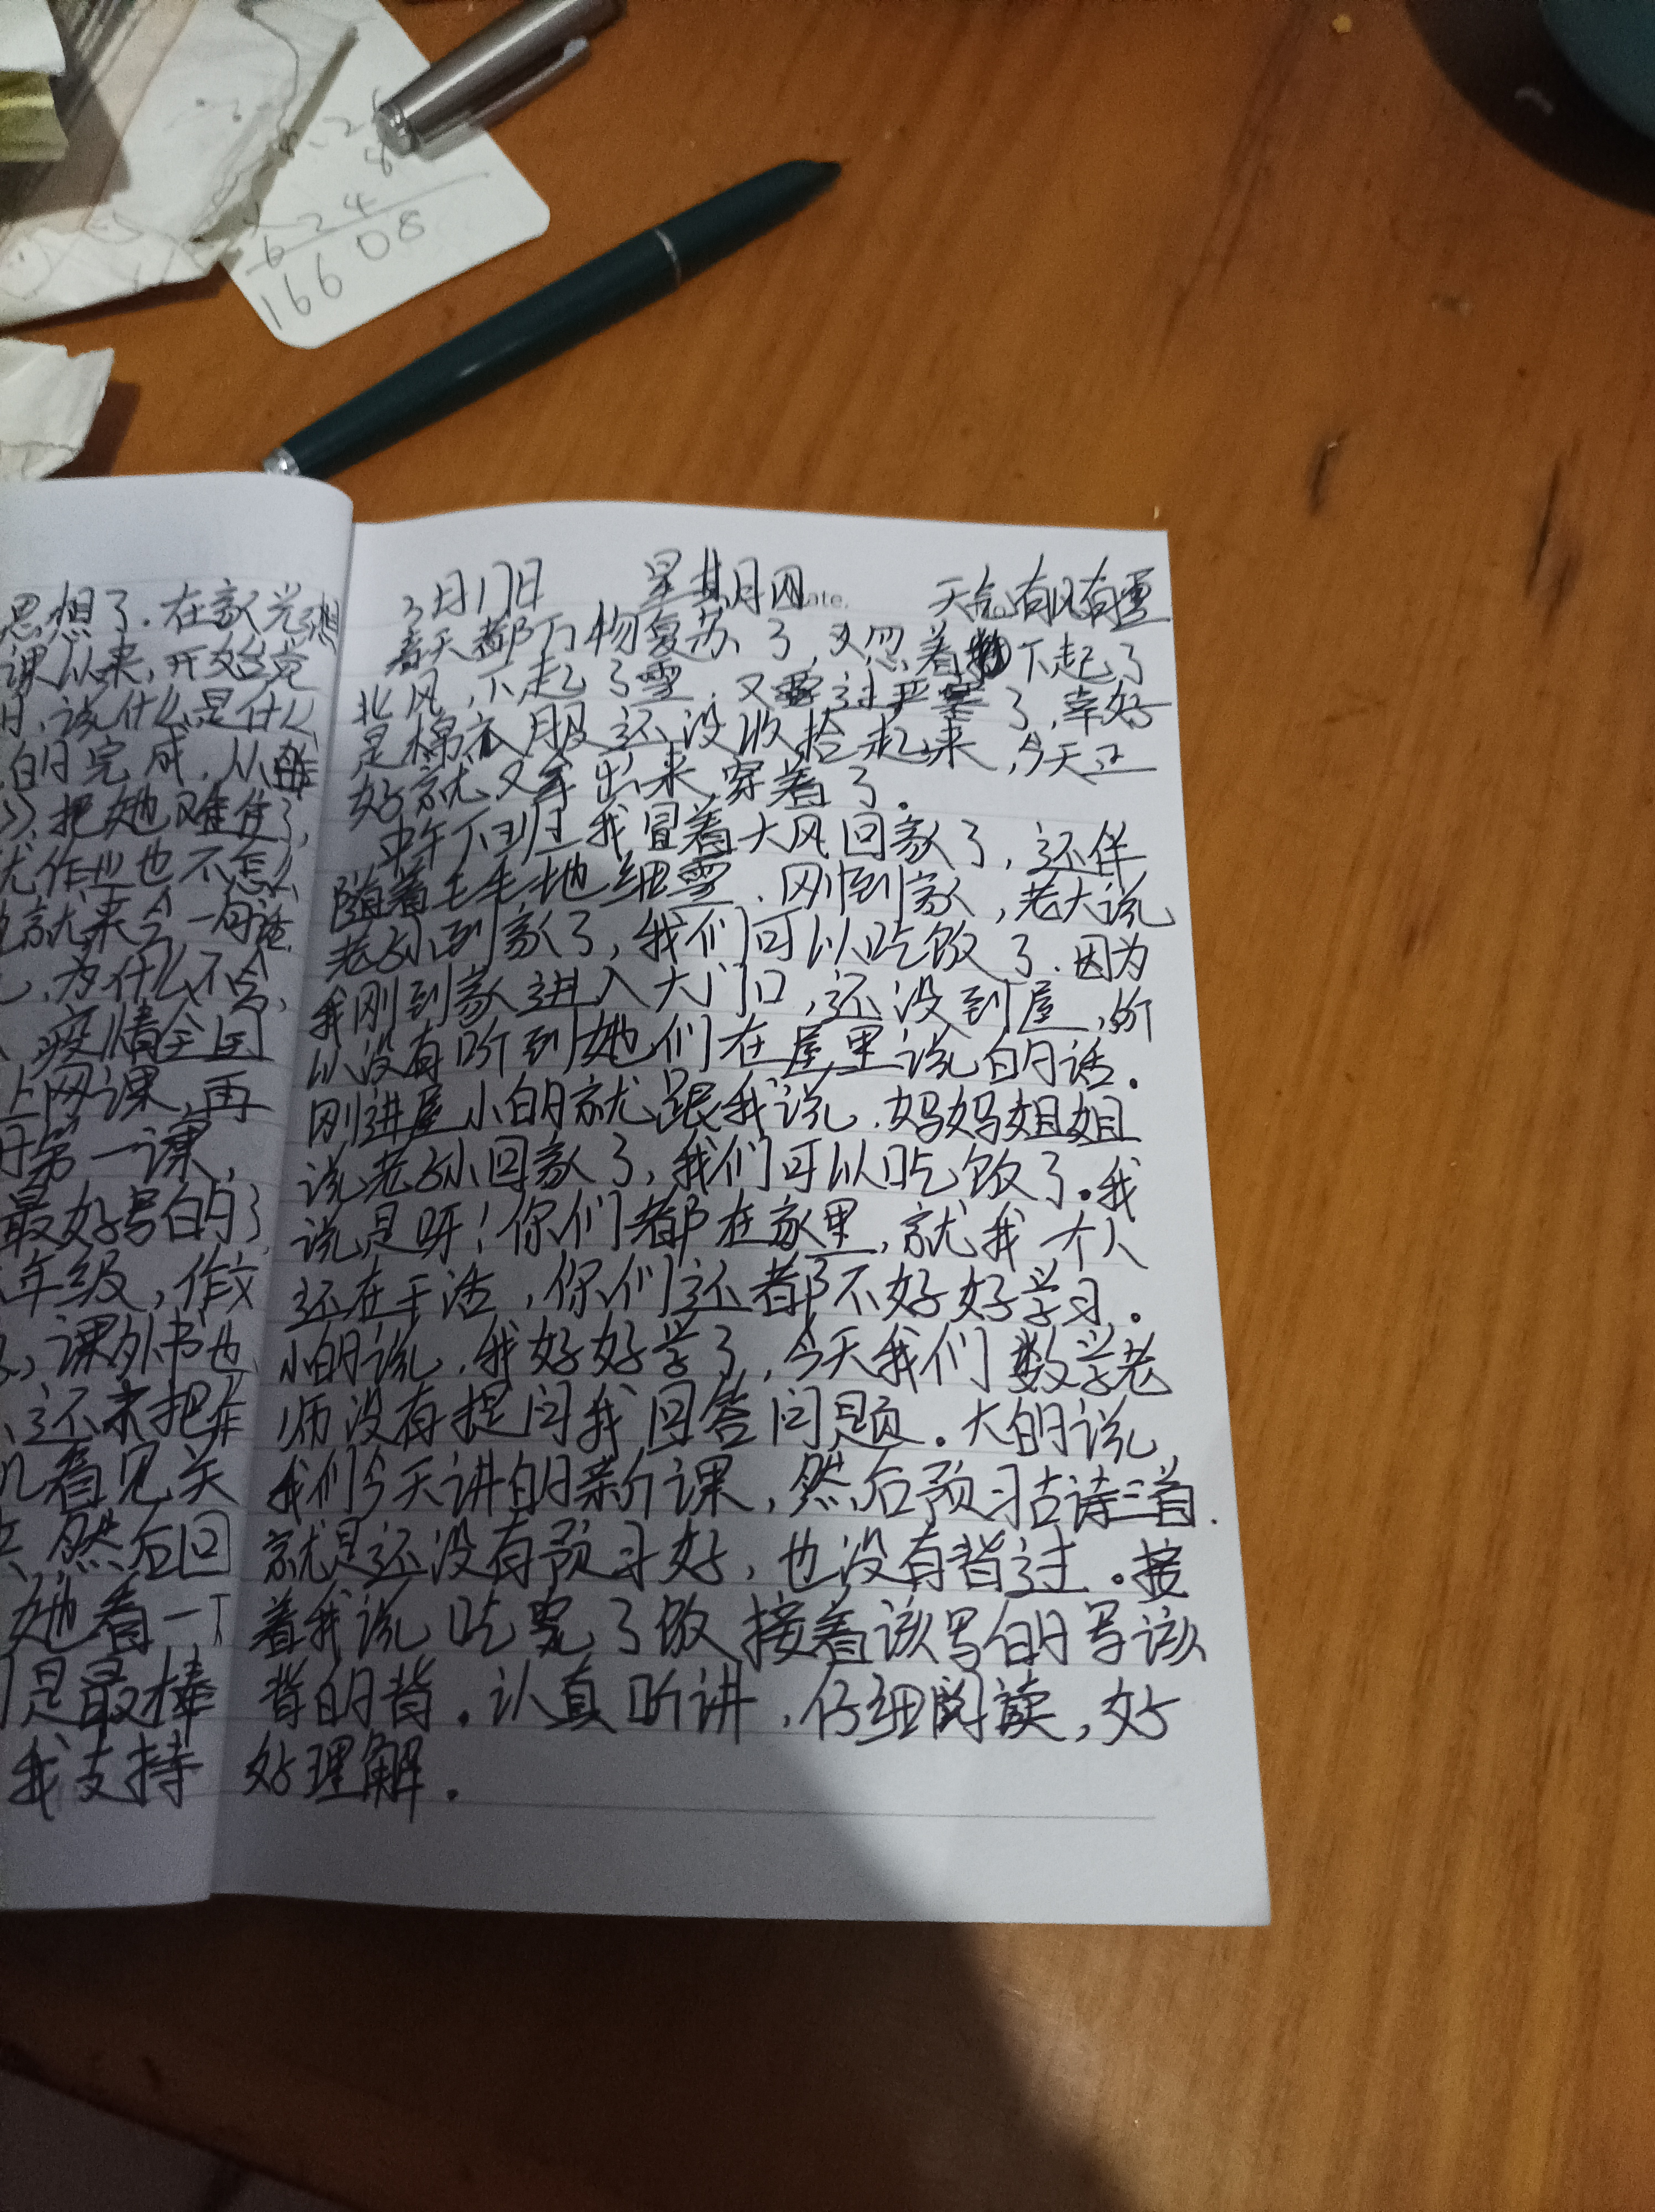 8
6 2 4
16608
思想了.在家光想
课以来,开始觉
该什么是什么
的完成.从昨
把她难住了,
作业也不怎么
就来个一句话.
,为什么不会,
疫情全国
上网课,再
第一课,
最好号的了
年级,作文
,课外书也
,还未把作
看见关
然后回
她看一下
是最棒
我支持
3月17日 星期四 天气有风有雪
ate.
春天都万物复苏了,又忽着下起了
北风,下起了雪.又要过严寒了,幸好
是棉衣服还没收拾起来,今天正
好就又拿出来穿着了.
中午下班我冒着大风回家了,还伴
随着毛毛地细雪.刚到家,老大说
老小到家了,我们可以吃饭了.因为
我刚到家进入大门口,还没到屋,所
以没有听到她们在屋里说的话.
刚进屋小的就跟我说.妈妈姐姐
说老小回家了,我们可以吃饭了.我
说是呀!你们都在家里,就我一个人
还在干活,你们还都不好好学习.
小的说.我好好学了,今天我们数学老
师没有提问我回答问题.大的说
我们今天讲的新课,然后预习古诗三首.
就是还没有预习好,也没有背过.接
着我说吃完了饭接着该写的写该
背的背.认真听讲,仔细阅读,好
好理解.